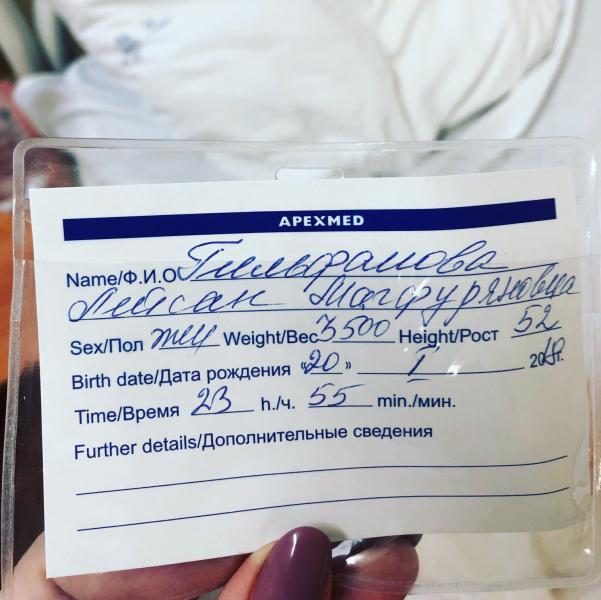 APEXMED
Name/Ф.И.О Гильфанова
Лейсан Магфуряновна
Sex/Пол жен Weight/Вес 3500 Height/Рост 52
Birth date/Дата рождения «20» I 20 г.
Time/Время 23 h./ч. 55 min./мин.
Further details/Дополнительные сведения